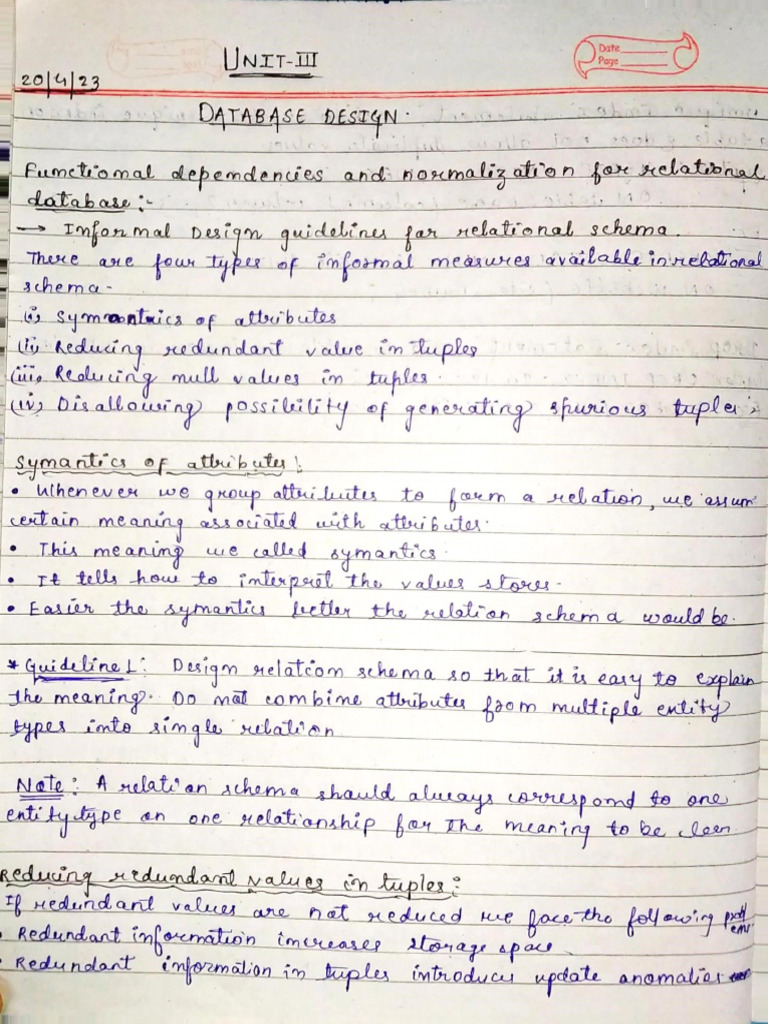 UNIT-III
Date
Page
20/4/23
DATABASE DESIGN.
Functional dependencies and normalization for relational
database:-
→ Informal Design guidelines for relational schema.
There are four types of informal measures available in relational
schema-
(i) Symantics of attributes
(ii) Reducing redundant value in tuples
(iii) Reducing null values in tuples.
(iv) Disallowing possibility of generating spurious tuple
Symantics of attributes:
• Whenever we group attributes to form a relation, we assum
certain meaning associated with attributes.
• This meaning we called symantics.
• It tells how to interpret the values stores.
• Easier the symantics better the relation schema would be.
* Guideline 1: Design relation schema so that it is easy to explain
the meaning. Do not combine attributes from multiple entity
types into single relation
Note: A relation schema should always correspond to one
entity type on one relationship for the meaning to be
Reducing redundant values in tuples:
If redundant values are not reduced we face the following probl
ems
• Redundant information increases storage space
• Redundant information in tuples introduces update anomalies